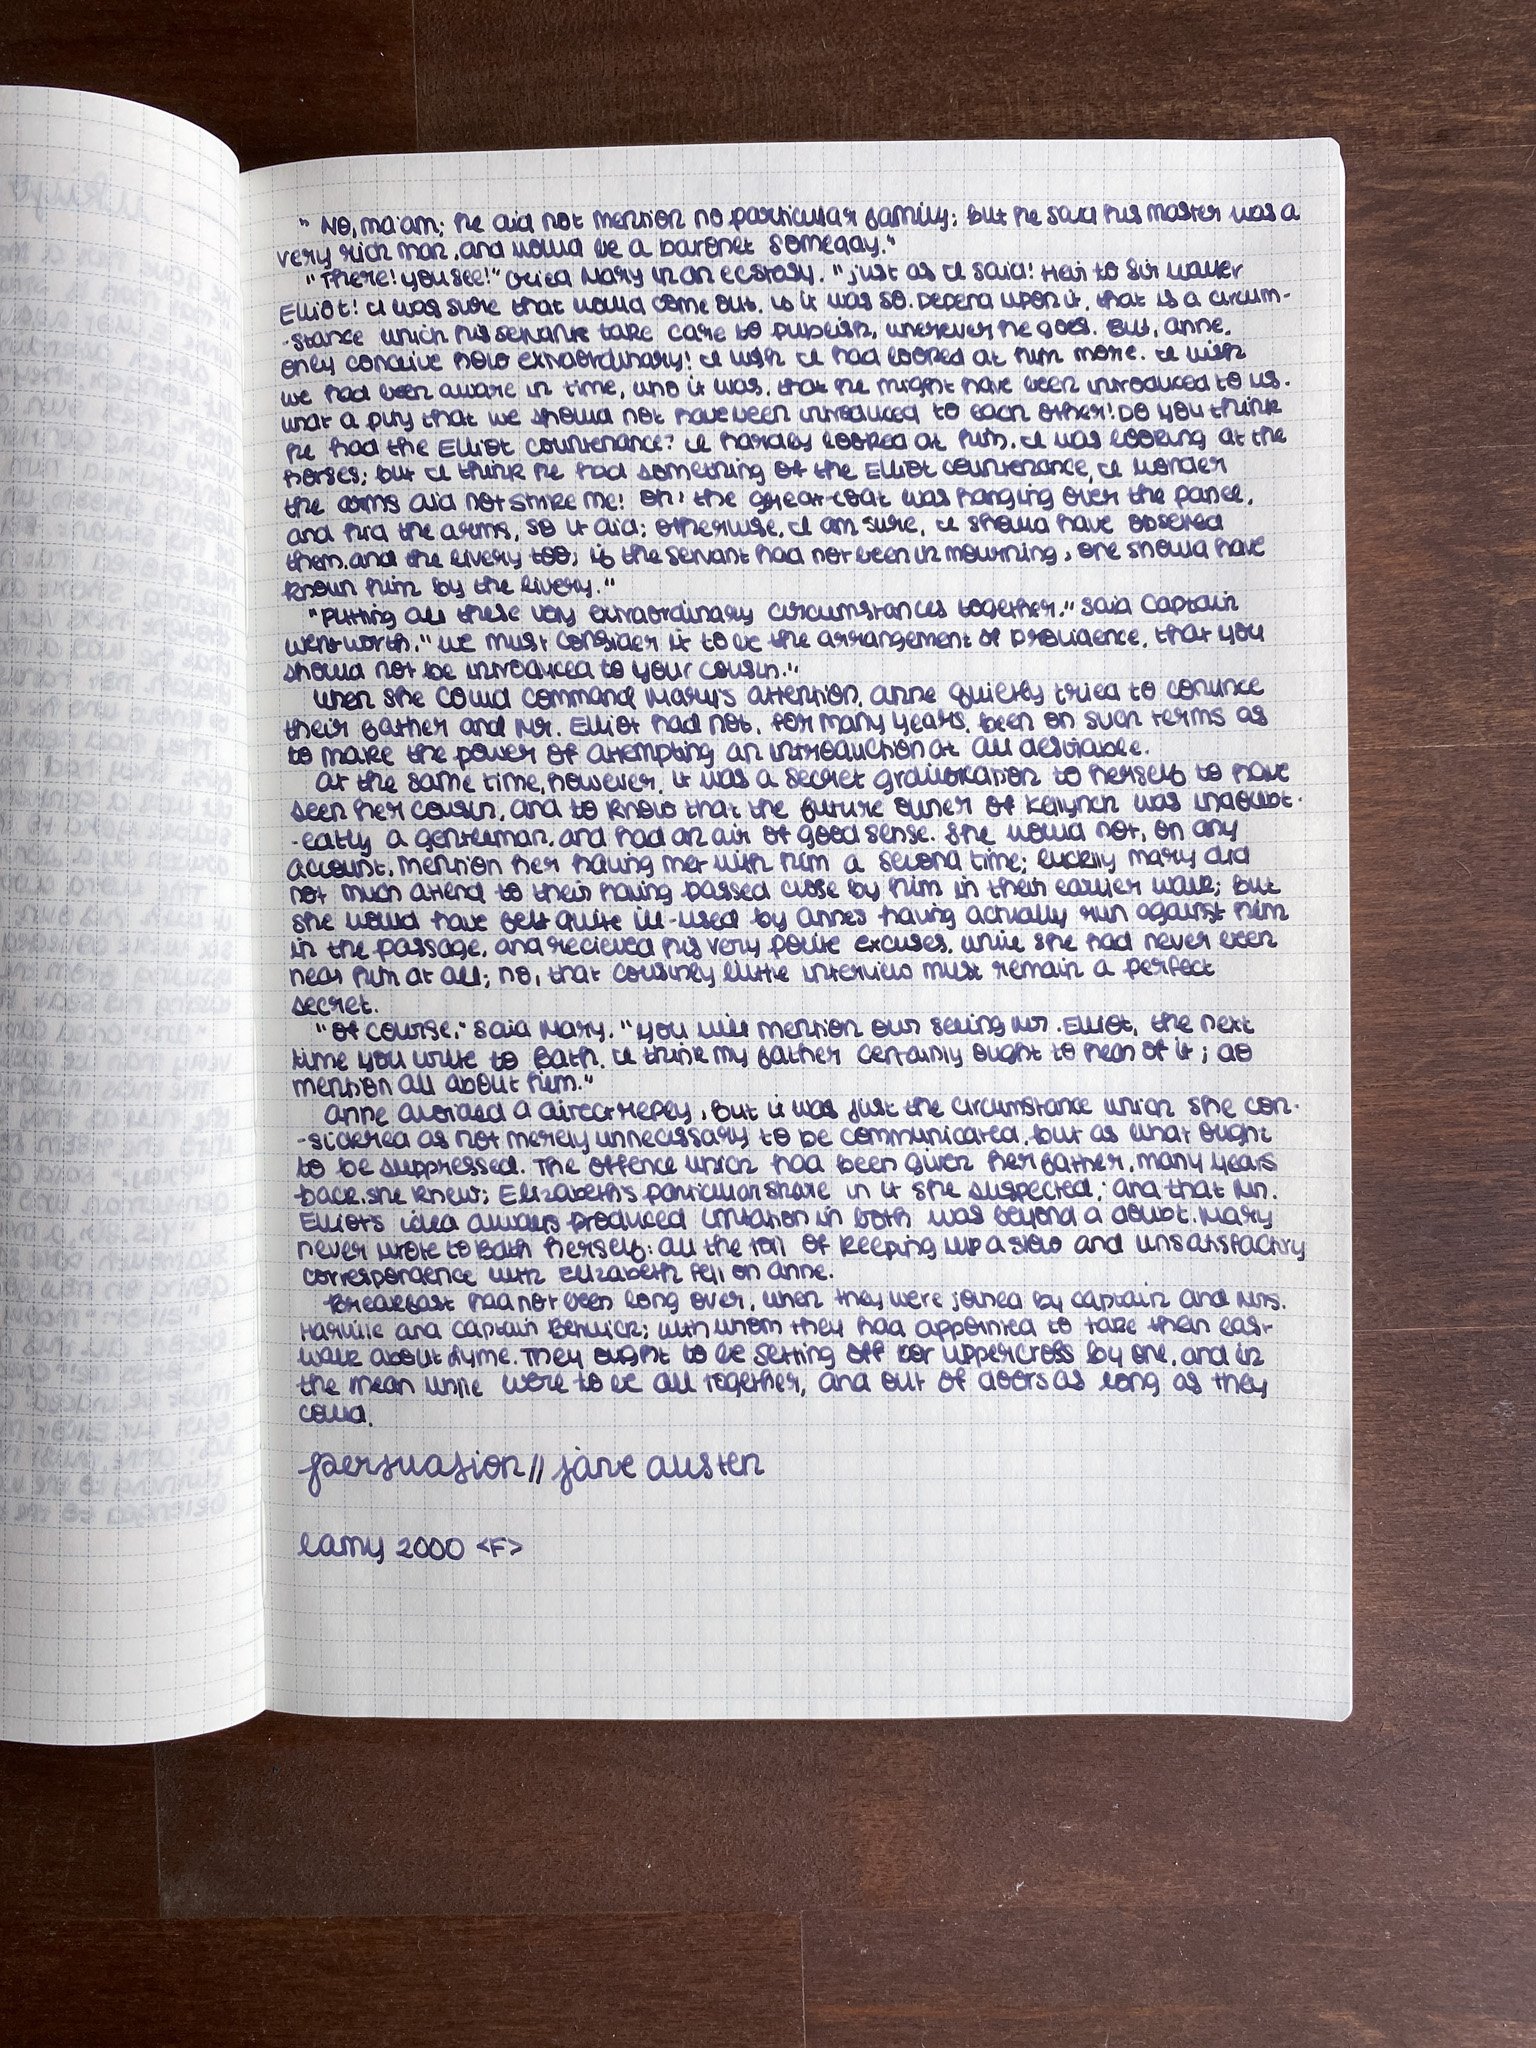 "No, ma'am; he did not mention no particular family; but he said his master was a
very rich man, and would be a baronet someday."
"There! you see!" cried Mary in an ecstasy. "just as I said! Heir to Sir Walter
Elliot! I was sure that would come out, if it was so. Depend upon it, that is a circum-
-stance which his servants take care to publish, wherever he goes. But, anne,
only concieve how extraordinary! I wish I had looked at him more. I wish
we had been aware in time, who it was, that he might have been introduced to us.
what a pity that we should not have been introduced to each other! Do you think
he had the Elliot countenance? I hardly looked at him, I was looking at the
horses; but I think he had something of the Elliot countenance, I wonder
the arms did not strike me! Oh! the great-coat was hanging over the panel,
and hid the arms, so it did; otherwise, I am sure, I should have observed
them, and the livery too; if the servant had not been in mourning, one should have
known him by the livery."
"Putting all these very extraordinary circumstances together," said Captain
wentworth, "we must consider it to be the arrangement of providence, that you
should not be introduced to your cousin."
when she could command Mary's attention, anne quietly tried to convince
their father and Mr. Elliot had not, for many years, been on such terms as
to make the power of attempting an introduction at all desirable.
at the same time, however, it was a secret gratification to herself to have
seen her cousin, and to know that the future owner of Kellynch was undoubt-
-edly a gentleman, and had an air of good sense. She would not, on any
account, mention her having met with him a second time; luckily mary did
not much attend to their having passed close by him in their earlier walk; but
she would have felt quite ill-used by anne's having actually run against him
in the passage, and recieved his very polite excuses, while she had never been
near him at all; no, that cousinly little interview must remain a perfect
secret.
"Of course," said Mary, "you will mention our seeing Mr. Elliot, the next
time you write to Bath. I think my father certainly ought to hear of it; do
mention all about him."
anne avoided a direct reply, but it was just the circumstance which she con-
-sidered as not merely unnecessary to be communicated, but as what ought
to be suppressed. The offence which had been given her father, many years
back, she knew; Elizabeth's particular share in it she suspected; and that Mr.
Elliot's idea always produced irritation in both was beyond a doubt. Mary
never wrote to Bath herself; all the toil of keeping up a slow and unsatisfactory
correspondence with Elizabeth fell on anne.
Breakfast had not been long over, when they were joined by captain and Mrs.
Harville and captain Benwick; with whom they had appointed to take their last
walk about Lyme. They ought to be setting off for uppercross by one, and in
the mean while were to be all together, and out of doors as long as they
could.
persuasion // jane austen
lamy 2000 <F>